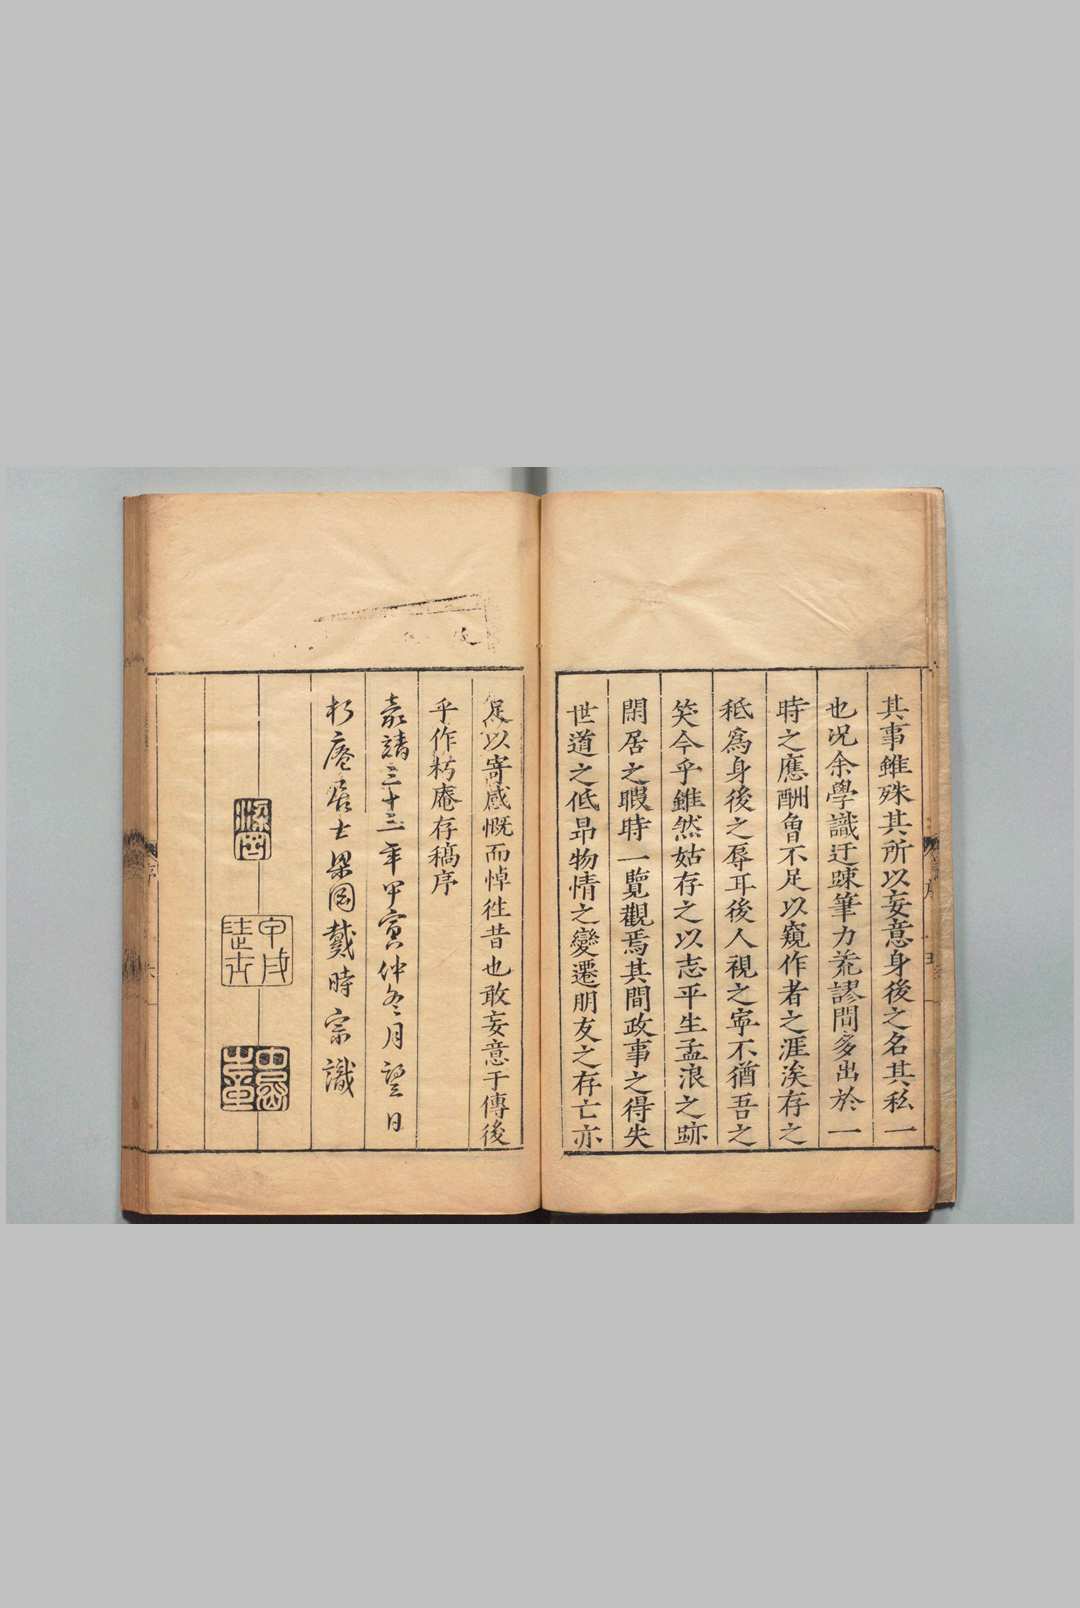 其事雖殊其所以妄意身後之名其私一
也况余學識迂踈筆力荒謬間多出於一
時之應酬魯不足以窺作者之涯涘存之
秪爲身後之辱耳後人視之寧不猶吾之
笑今乎雖然姑存之以志平生孟浪之跡
閑居之暇時一覽觀焉其間政事之得失
世道之低昂物情之變遷朋友之存亡亦
足以寄感慨而悼徃昔也敢妄意于傳後
乎作朽庵存稿序
嘉靖三十三年甲寅仲冬月望日
朽庵居士梁岡戴時宗識
甲戌進士